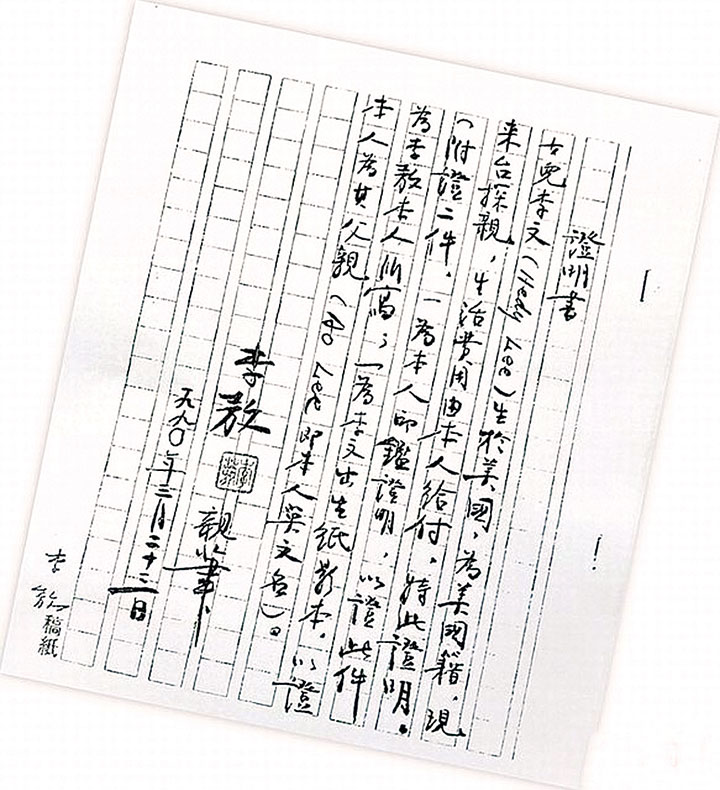 證明書
女兒李文(Hedy Lee)生於美國,為美國籍,現
来台探親,生活費用由本人給付,特此證明。
(附證二件,一為本人印鑑證明,以證此件
為李敖本人所寫;一為李文出生紙影本,以證
本人為其父親(Ao Lee即本人英文名)。
李敖
親筆
一九九〇年三月二十二日
李敖稿紙